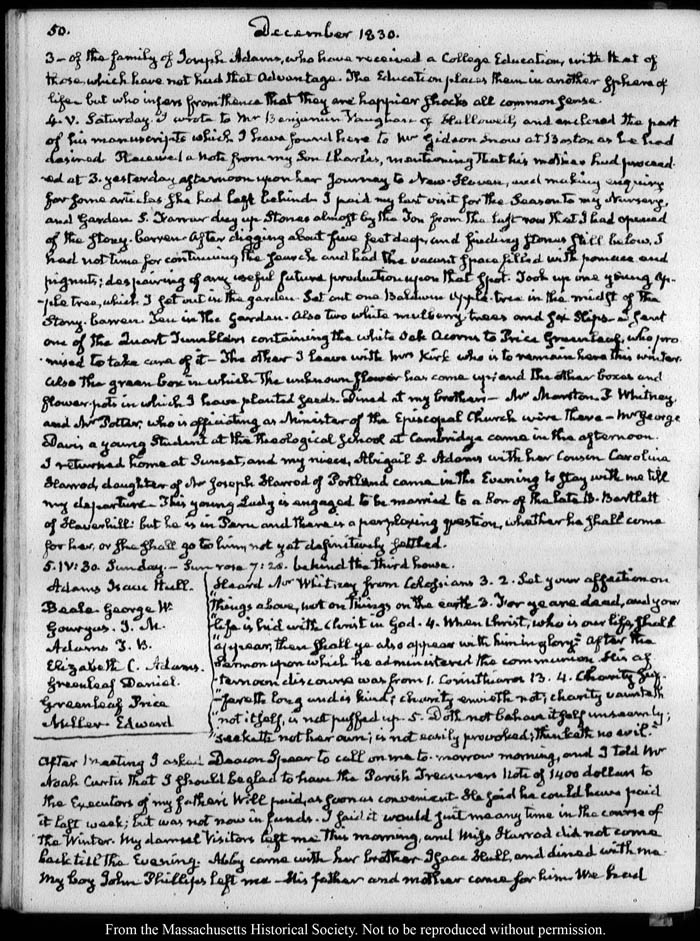 50.
December 1830.
3 - of the family of Joseph Adams, who have received a College Education, with that of
those which have not had that advantage. The Education places them in another Sphere of
life - but who infers from thence that they are happier shocks all common sense.
4. V. Saturday. I wrote to Mr Benjamin Vaughan of Hallowell, and enclosed the part
of his manuscripts which I have found here to Mr Gideon Snow at Boston as he had
desired. Received a Note from my Son Charles, mentioning that his mother had proceed-
ed at 3. yesterday afternoon upon her Journey to New-Haven, and making enquiry
for some articles she had left behind. I paid my last visit for the Season to my Nursery,
and Garden. S. Farrar dug up Stones almost by the Ton from the last row that I had opened
of the Stony-barren. After digging about five feet deep, and finding Stones still below, I
had not time for continuing the search and had the vacant space filled with pomace and
pignuts; despairing of any useful future production upon that spot. Took up one young ap-
-ple tree, which I set out in the garden. Set out one Baldwin Apple-tree in the midst of the
Stony barren. Ten in the Garden. Also two white mulberry trees and six Slips - I sent
one of the Quart Tumblers containing the white Oak Acorns to Price Greenleaf, who pro-
mised to take care of it - The other I leave with Mrs Kirk who is to remain here this winter.
Also the green box in which the unknown flower has come up; and the other boxes and
flower pots in which I have planted seeds. Dined at my brother's - Mr Marston. F. Whitney
and Mr Potter, who is officiating as Minister of the Episcopal Church were there - Mr George
Davis a young Student at the Theological School at Cambridge came in the afternoon.
I returned home at Sunset, and my niece, Abigail S. Adams with her Cousin Carolina
Harrod, daughter of Mr Joseph Harrod of Portland came in the Evening to stay with me till
my departure - This young Lady is engaged to be married to a Son of the late B. Bartlett
of Haverhill: but he is in Peru and there is a perplexing question, whether he shall come
for her, or she shall go to him, not yet definitively settled.
5. IV: 30. Sunday. - Sun rose 7:20. behind the third house.
Adams Isaac Hull.
Beale George W.
Gourgas. J. M.
Adams T. B.
Elizabeth C. Adams.
Greenleaf Daniel.
Greenleaf Price
Miller Edward
Heard Mr Whitney from Colossians 3. 2. Set your affection on
"things above, not on things on the earth 3. For ye are dead, and your
"life is hid with Christ in God. 4. When Christ, who is our life, shall
"appear, then shall ye also appear with him in glory." After the
Sermon upon which he administered the communion. His af-
-ternoon discourse was from 1. Corinthians 13. 4. Charity suf-
"fereth long and is kind; charity envieth not; charity vaunteth
"not itself, is not puffed up. 5. Doth not behave itself unseemly;
"seeketh not her own; is not easily provoked; thinketh no evil."
After Meeting I asked Deacon Spear to call on me to-morrow morning, and I told Mr
Noah Curtis that I should be glad to have the Parish Treasurer's Note of 1400 dollars to
the Executors of my father's Will paid, as soon as convenient. He said he could have paid
it last week; but was not now in funds. I said it would suit me any time in the course of
the Winter. My damsel Visitors left me this morning, and Miss Harrod did not come
back till the Evening. Abby came with her brother Isaac Hull, and dined with me.
My boy John Phillips left me - His father and mother came for him. We had
From the Massachusetts Historical Society. Not to be reproduced without permission.